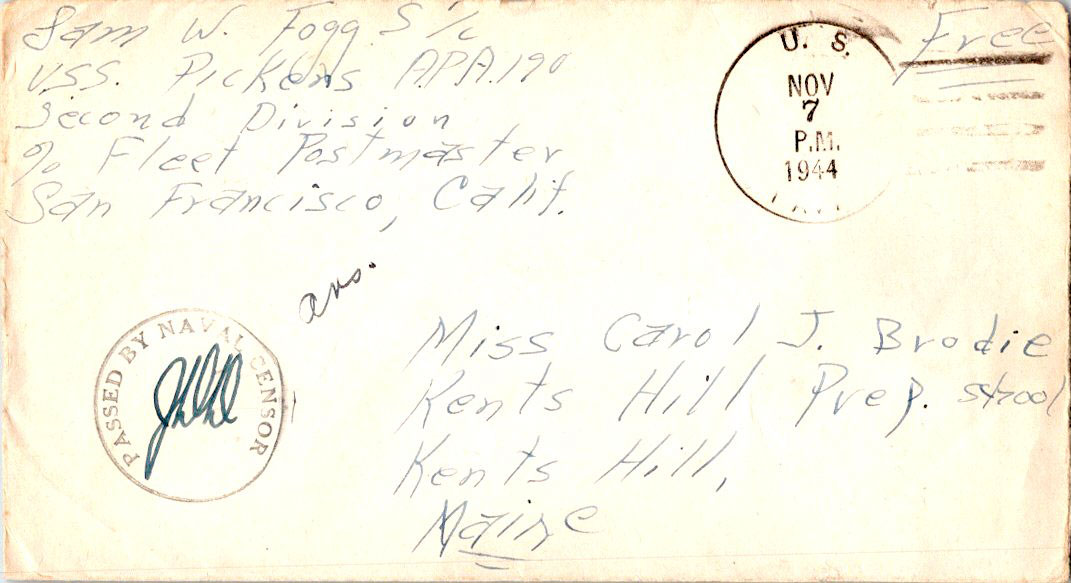 Sam W. Fogg S 1/c
U.S.S. Pickens A.P.A. 190
Second Division
% Fleet Postmaster
San Francisco, Calif.
U. S.
NOV
7
P.M.
1944
Free
ans.
PASSED BY NAVAL CENSOR
Miss Carol J. Brodie
Kents Hill Prep. School
Kents Hill,
Maine